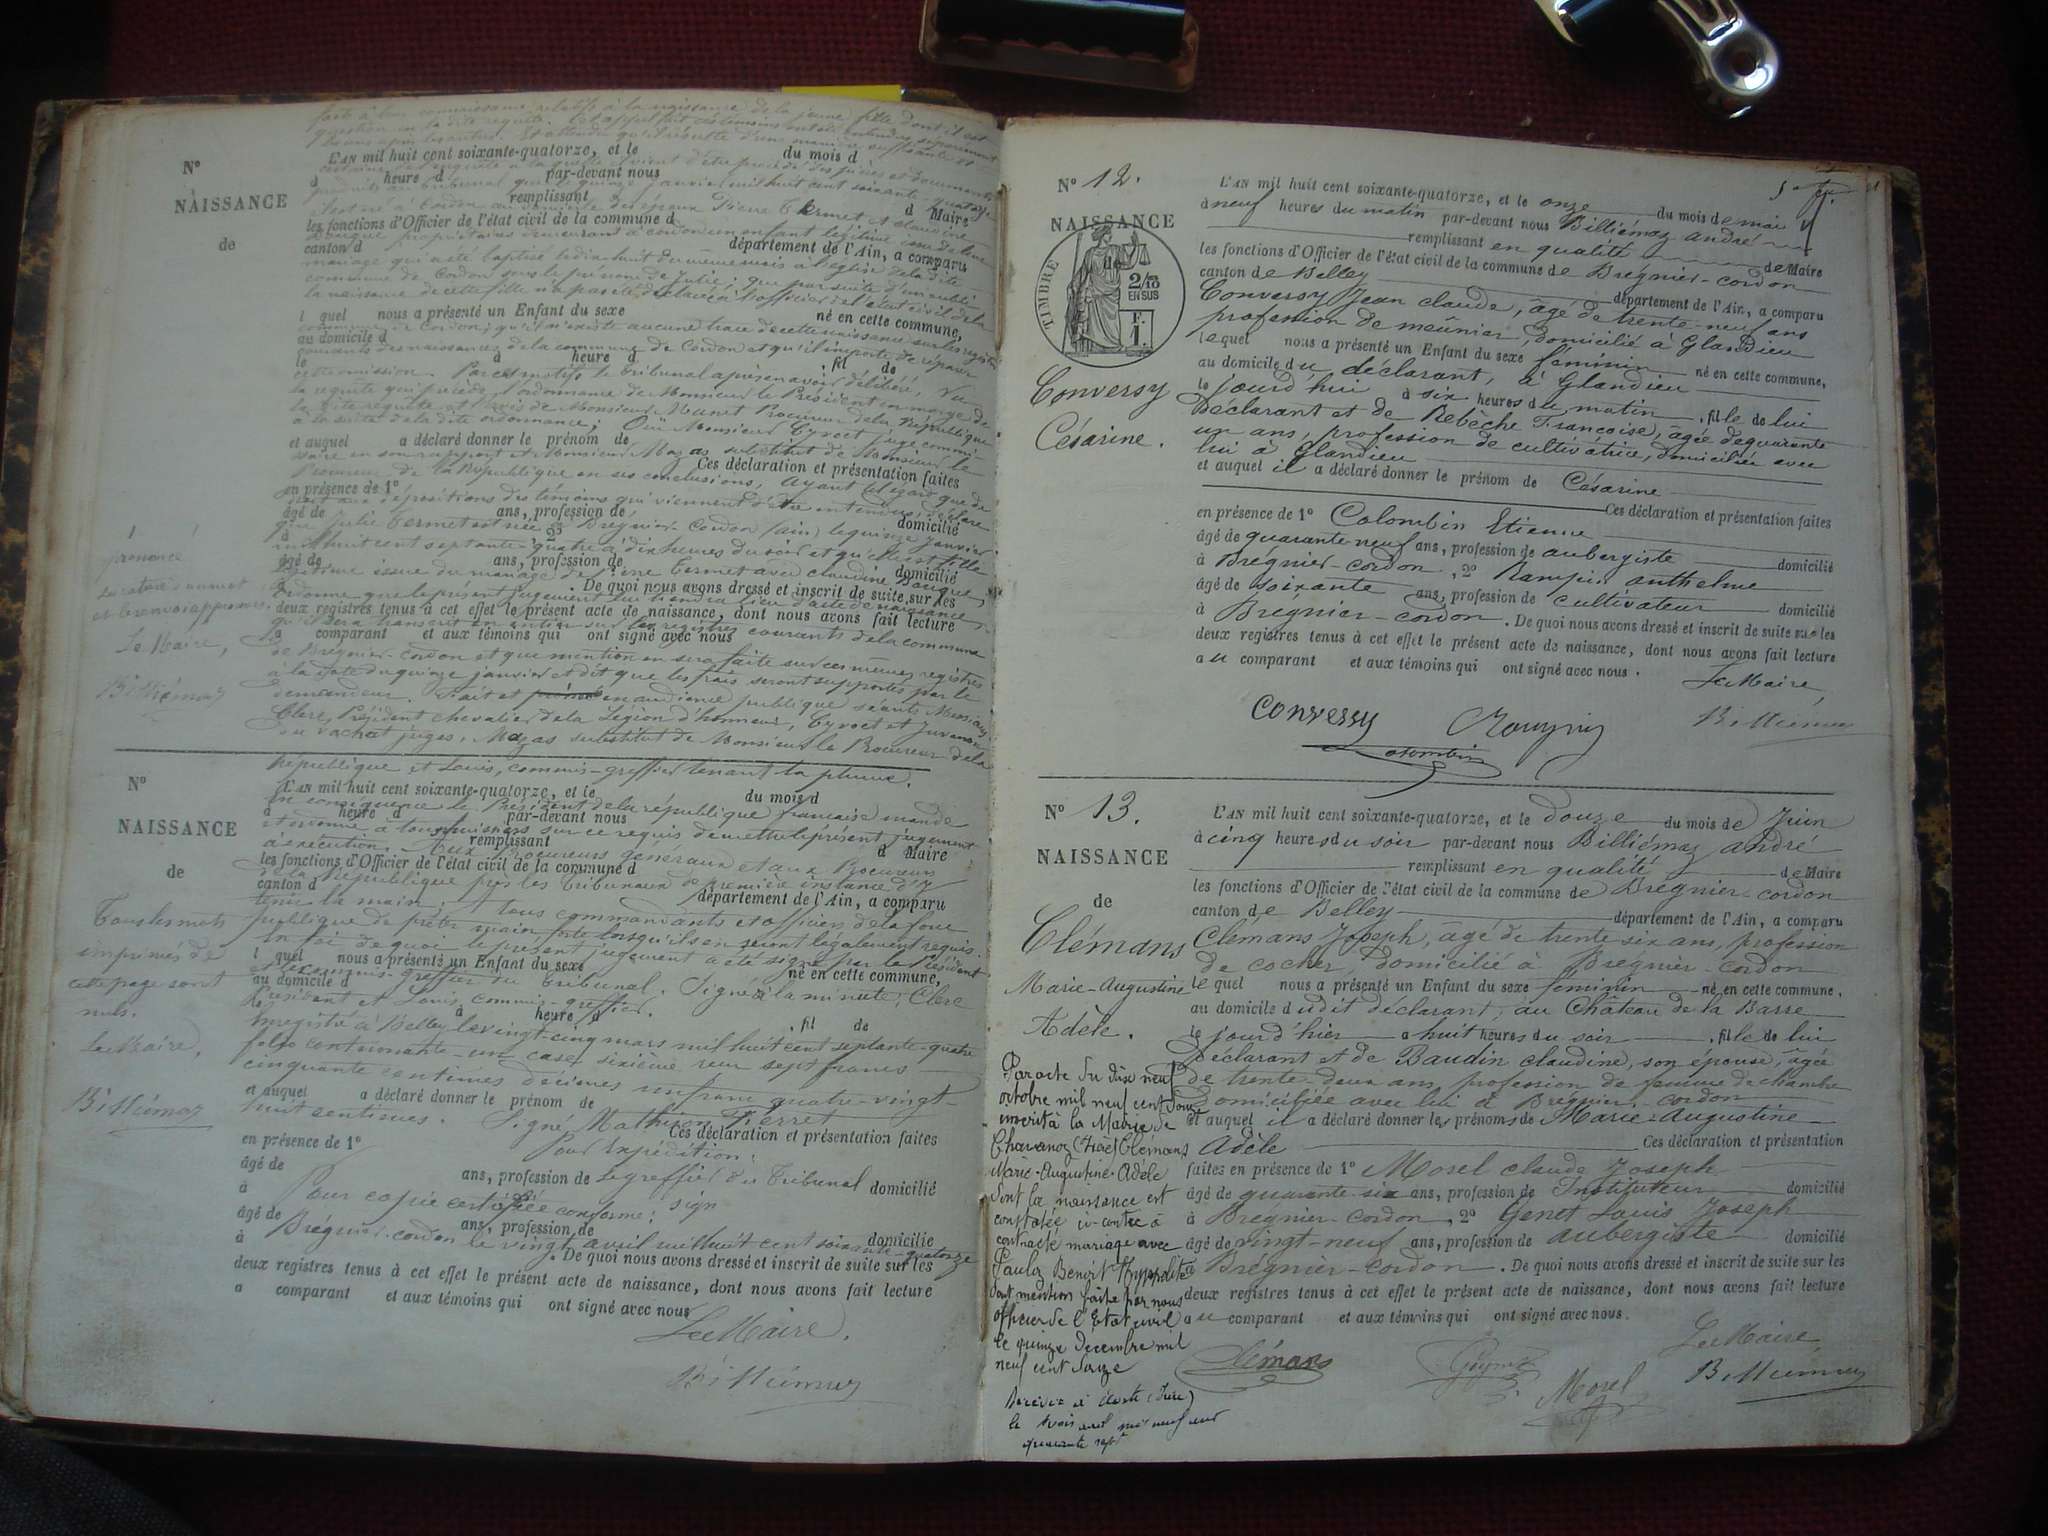 faits à leur connaissance relatifs à la naissance de la jeune fille dont il est
question en la dite requête.
L'AN mil huit cent soixante-quatorze, et le du mois d
N°
à heure d par-devant nous
NAISSANCE
remplissant d Maire
les fonctions d'Officier de l'état civil de la commune d
de
canton d département de l'Ain, a comparu
mariage qui a été baptisé le dix huit du même mois à l'église de la dite
commune de Cordon sous le prénom de Julie; que par suite d'un oubli
la naissance de cette fille n'a pas été déclarée à l'officier de l'état civil de la
l quel nous a présenté un Enfant du sexe né en cette commune,
commune de Cordon; qu'il n'existe aucune trace de cette naissance sur les registres
au domicile d
courants des naissances de la commune de Cordon et qu'il importe de réparer
le à heure d
cette omission. Par ces motifs le tribunal après en avoir délibéré, Vu
, fil de
la requête qui précède, l'ordonnance de Monsieur le Président en marge de
la dite requête et l'avis de Monsieur Procureur de la République
à la suite de la dite ordonnance; Ouï Monsieur Cyvoct juge commis-
et auquel a déclaré donner le prénom de
saire en son rapport et Monsieur Mazas substitut de Monsieur le
Procureur de la République en ses conclusions,
Ces déclaration et présentation faites
en présence de 1°
âgé de ans, profession de domicilié
que Julie Termet est née à Brégnier-Cordon (ain) le quinze janvier
à , 2°
mil huit cent septante-quatre à dix heures du soir et qu'elle est fille
âgé de ans, profession de domicilié
légitime issue du mariage de Pierre Termet avec Claudine
à . De quoi nous avons dressé et inscrit de suite sur les
deux registres tenus à cet effet le présent acte de naissance, dont nous avons fait lecture
qu'il sera transcrit en entier sur les registres courants de la commune
a comparant et aux témoins qui ont signé avec nous
de Brégnier-Cordon et que mention en sera faite sur ces mêmes registres
à la date du quinze janvier et dit que les frais seront supportés par le
demandeur. Fait et prononcé en audience publique séants Messieurs
Clerc, Président chevalier de la Légion d'honneur, Cyvoct et
du Vachat juges, Mazas substitut de Monsieur le Procureur de la
République et Louis, commis-greffier tenant la plume.
prononcé
La rature d'un mot
et le renvoi approuvés.
Le Maire,
Billiémaz
N°
L'AN mil huit cent soixante-quatorze, et le du mois d
En conséquence le Président de la république française mande
NAISSANCE
à heure d par-devant nous
et ordonne à tous huissiers sur ce requis de mettre le présent jugement
remplissant d Maire
à exécution. Aux Procureurs généraux et aux Procureurs
les fonctions d'Officier de l'état civil de la commune d
de
de la République près les tribunaux de première instance d'y
canton d département de l'Ain, a comparu
tenir la main; à tous commandants et officiers de la force
publique de prêter main forte lorsqu'ils en seront légalement requis.
En foi de quoi le présent jugement a été signé par le Président
l quel nous a présenté un Enfant du sexe né en cette commune,
et le commis-greffier du tribunal. Signé à la minute; Clerc
au domicile d
Président et Louis, commis-greffier.
le à heure d
, fil de
Enregistré à Belley le vingt-cinq mars mil huit cent septante-quatre
folio case sixième reçu sept francs
cinquante centimes décimes un franc quatre-vingt-
et auquel a déclaré donner le prénom de
huit centimes. Signé, Mathieu Pierret
Ces déclaration et présentation faites
en présence de 1°
Pour Expédition:
âgé de ans, profession de domicilié
Le greffier du Tribunal
à
Pour copie certifiée conforme: sign
âgé de ans, profession de domicilié
Brégnier-cordon le vingt avril mil huit cent soixante-quatorze
à . De quoi nous avons dressé et inscrit de suite sur les
deux registres tenus à cet effet le présent acte de naissance, dont nous avons fait lecture
a comparant et aux témoins qui ont signé avec nous
Le Maire.
Billiémaz
Tous les mots
imprimés de
cette page sont
nuls.
Le Maire,
Billiémaz
N° 12.
NAISSANCE
de
TIMBRE
2/10
EN SUS
F.
1.
Conversy
Césarine.
L'AN mil huit cent soixante-quatorze, et le onze du mois de mai
à neuf heures du matin par-devant nous Billiémaz André
remplissant en qualité de Maire
les fonctions d'Officier de l'état civil de la commune de Brégnier-cordon
canton de Belley département de l'Ain, a comparu
Conversy Jean claude, âgé de trente-neuf ans
profession de meûnier, domicilié à Glandieu
lequel nous a présenté un Enfant du sexe féminin né en cette commune,
au domicile du déclarant, à Glandieu
le jourd'hui à six heures du matin , fille de lui
Déclarant et de Rebèche Françoise, âgée de quarante
un ans, profession de cultivatrice, domiciliée avec
lui à Glandieu
et auquel il a déclaré donner le prénom de Césarine
Ces déclaration et présentation faites
en présence de 1° Colombin Etienne
âgé de quarante-neuf ans, profession de aubergiste domicilié
à Brégnier-cordon , 2° Rampin anthelme
âgé de soixante ans, profession de cultivateur domicilié
à Brégnier-cordon . De quoi nous avons dressé et inscrit de suite sur les
deux registres tenus à cet effet le présent acte de naissance, dont nous avons fait lecture
au comparant et aux témoins qui ont signé avec nous.
Le Maire,
Conversy
Billiémaz
Colombin
N° 13.
NAISSANCE
de
Clémans
Marie-Augustine
Adèle.
L'AN mil huit cent soixante-quatorze, et le douze du mois de Juin
à cinq heures du soir par-devant nous Billiémaz André
remplissant en qualité de Maire
les fonctions d'Officier de l'état civil de la commune de Brégnier-cordon
canton de Belley département de l'Ain, a comparu
Clémans Joseph, âgé de trente six ans, profession
de cocher, domicilié à Brégnier-cordon
lequel nous a présenté un Enfant du sexe féminin né en cette commune,
au domicile dudit déclarant, au Château de la Barre
le jourd'hier à huit heures du soir , fille de lui
Déclarant et de Baudin claudine, son épouse, âgée
de trente-deux ans, profession de femme de chambre
Domiciliée avec lui à Brégnier-cordon
et auquel il a déclaré donner les prénoms de Marie-Augustine
Adèle Ces déclaration et présentation
faites en présence de 1° Morel claude Joseph
âgé de quarante-six ans, profession de Instituteur domicilié
à Brégnier-cordon , 2° Genet Louis Joseph
âgé de vingt-neuf ans, profession de aubergiste domicilié
à Brégnier-cordon . De quoi nous avons dressé et inscrit de suite sur les
deux registres tenus à cet effet le présent acte de naissance, dont nous avons fait lecture
au comparant et aux témoins qui ont signé avec nous.
Le Maire
Clémans
Morel
Billiémaz
Par acte du dix neuf
octobre mil neuf cent douze
inscrit à la Mairie de
Chavanoz (Isère) Clémans
Marie-Augustine-Adèle
dont la naissance est
constatée ci-contre à
contracté mariage avec
Paulaz Benoit Hyppolite
dont mention faite par nous
officier de l'Etat civil
le quinze Décembre mil
neuf cent douze
Décédée à
le trois avril mil neuf cent
quarante sept